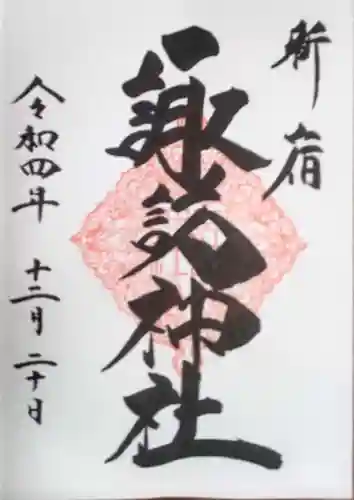 新宿
諏訪神社
令和四年 十二月二十日